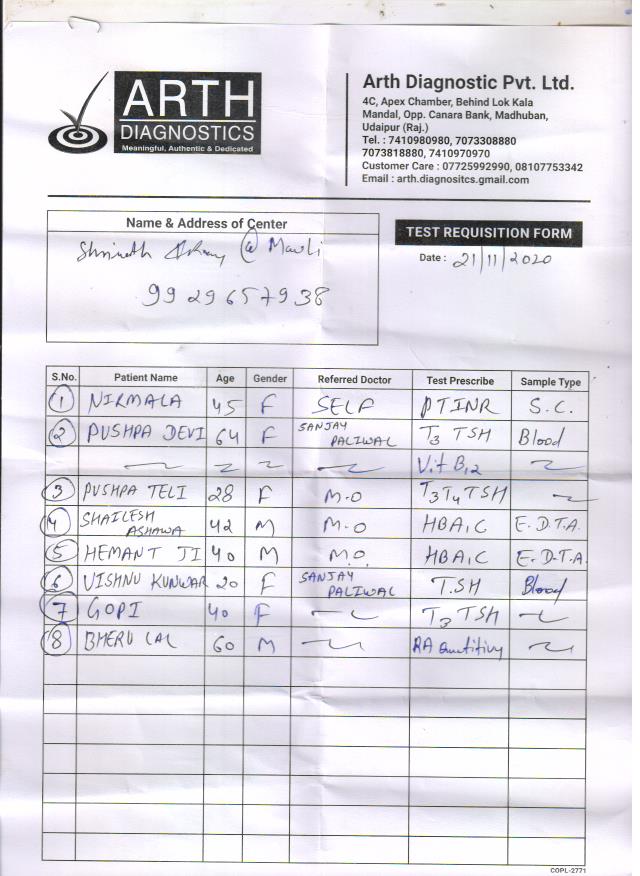 ARTH
DIAGNOSTICS
Meaningful, Authentic & Dedicated
Arth Diagnostic Pvt. Ltd.
4C, Apex Chamber, Behind Lok Kala
Mandal, Opp. Canara Bank, Madhuban,
Udaipur (Raj.)
Tel. : 7410980980, 7073308880
7073818880, 7410970970
Customer Care : 07725992990, 08107753342
Email : arth.diagnositcs.gmail.com
Name & Address of Center
@ Mavli
9929657938
TEST REQUISITION FORM
Date : 21/11/2020
S.No. Patient Name Age Gender Referred Doctor Test Prescribe Sample Type
1 NIRMALA 45 F SELF PTINR S.C.
2 PUSHPA DEVI 64 F SANJAY PALIWAL T3 TSH Blood
Vit B12
3 PUSHPA TELI 28 F M.O T3T4 TSH
4 SHAILESH ASHAWA 42 M M.O HBA1C E.D.T.A.
5 HEMANT JI 40 M M.O. HBA1C E.D.T.A.
6 VISHNU KUNWAR 20 F SANJAY PALIWAL T.SH Blood
7 GOPI 40 F T3 TSH
8 BHERU LAL 60 M RA
COPL-2771